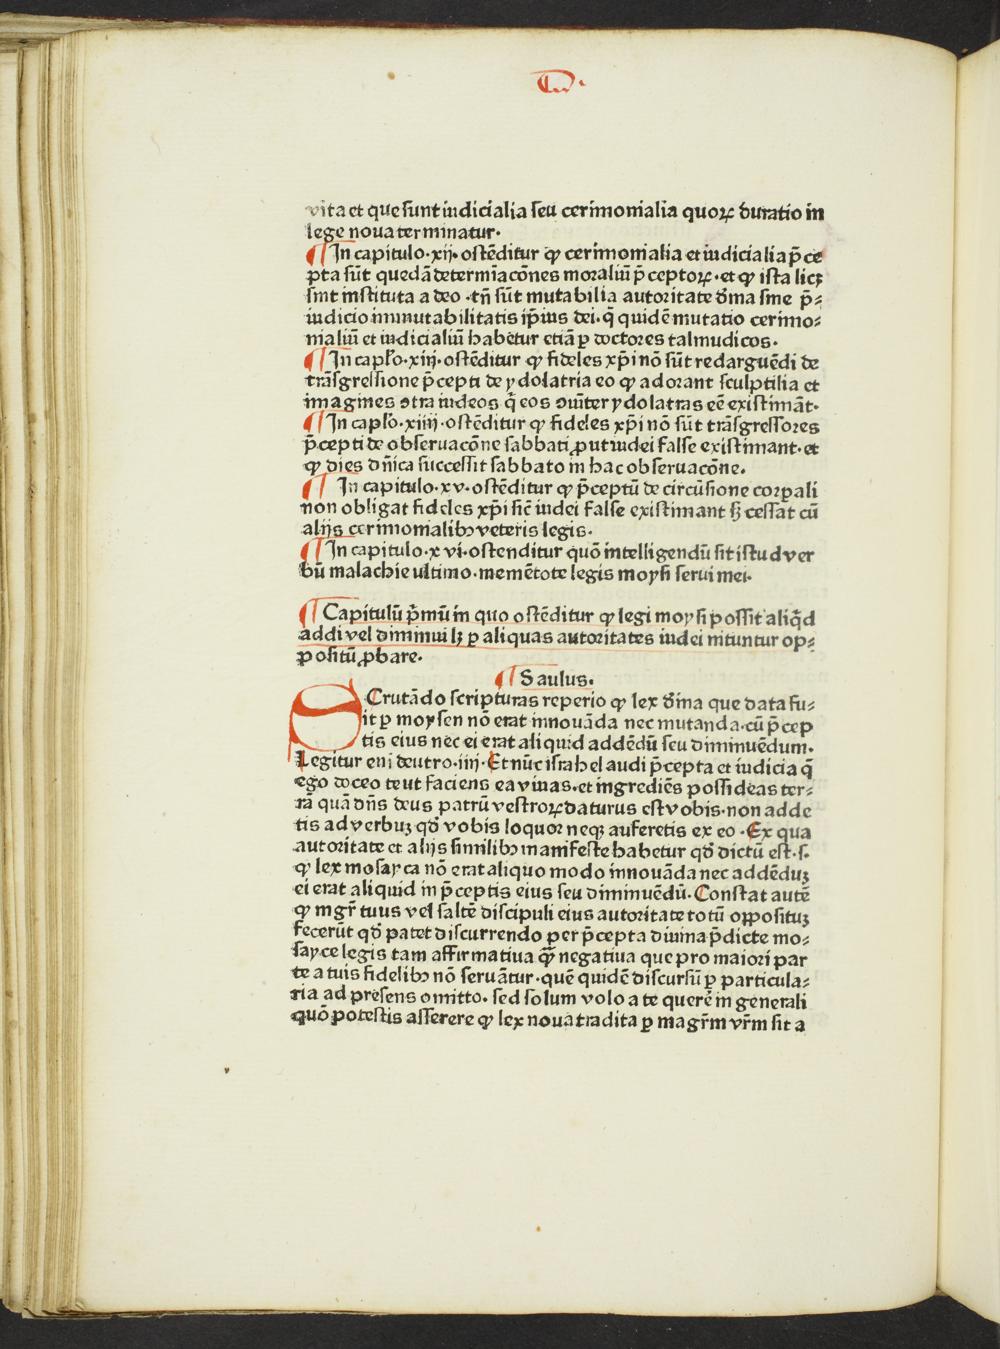 vita et que sunt iudicialia seu cerimonialia quoꝝ duratio in
lege noua terminatur·
¶ In capitulo·xij· ostēditur ꝙ cerimonialia et iudicialia p̄ce
pta sūt quedā determīacōnes moraliū p̄ceptoꝝ·et ꝙ ista licꝫ
sint instituta a deo ·tn̄ sūt mutabilia autoritate dīna sine p̄⸗
iudicio immutabilitatis ip̄ius dei·q̄ quidē mutatio cerimo⸗
nialiū et iudicialiū habetur etiā ꝑ doctores talmudicos·
¶ In caplo̅·xiij·ostēditur ꝙ fideles xp̄i nō sūt redarguēdi de
trāsgressione p̄cepti de ydolatria eo ꝙ adorant sculptilia et
imagines ↄtra iudeos q̄ eos ↄīter ydolatras eē existimāt·
¶ In caplo̅·xiiij·ostēditur ꝙ fideles xp̄i nō sūt trāsgressores
p̄cepti de obseruacōne sabbati ꝓut iudei false existimant·et
ꝙ dies dn̄ica successit sabbato in hac obseruacōne·
¶ In capitulo·xv·ostēditur ꝙ p̄ceptū de circūsione corꝑali
non obligat fideles xp̄i sic̄ iudei false existimant sꝫ cessat cū
alijs cerimonialibꝫ veteris legis·
¶ In capitulo·xvi·ostenditur quō intelligendū sit istud ver
bū malachie ultimo·memētote legis moysi serui mei·
¶ Capitulū p̄mū in quo ostēditur ꝙ legi moysi possit aliq̄d
addi vel diminui lꝫ ꝑ aliquas autoritates iudei nituntur op⸗
positū ꝓbare·
¶ Saulus·
SCrutādo scripturas reperio ꝙ lex dīna que data fu⸗
it ꝑ moysen nō erat innouāda nec mutanda·cū p̄cep
tis eius nec ei erat aliquid addēdū seu diminuēdum·
Legitur eni̅ deutro·iiij·Et nūc israhel audi p̄cepta et iudicia q̄
ego doceo te ut faciens ea viuas·et ingrediēs possideas ter⸗
rā quā dn̄s deus patrū vestroꝝ daturus est vobis·non adde
tis ad verbuꝫ qd̄ vobis loquor neqꝫ auferetis ex eo ·Ex qua
autoritate et alijs similibꝫ manifeste habetur qd̄ dictū est·s·
ꝙ lex mosayca nō erat aliquo modo innouāda nec addēduꝫ
ei erat aliquid in p̄ceptis eius seu diminuēdū·Constat autē
ꝙ mgr̄ tuus vel saltē discipuli eius autoritate totū oppositūꝫ
fecerūt qd̄ patet discurrendo per p̄cepta diuina p̄dicte mo⸗
sayce legis tam affirmatiua qꝫ̄ negatiua que pro maiori par
te a tuis fidelibꝫ nō seruātur·quē quidē discursū ꝑ particula⸗
ria ad presens omitto· sed solum volo a te querē in generali
quō potestis asserere ꝙ lex noua tradita ꝑ magr̄m vr̄m sit a